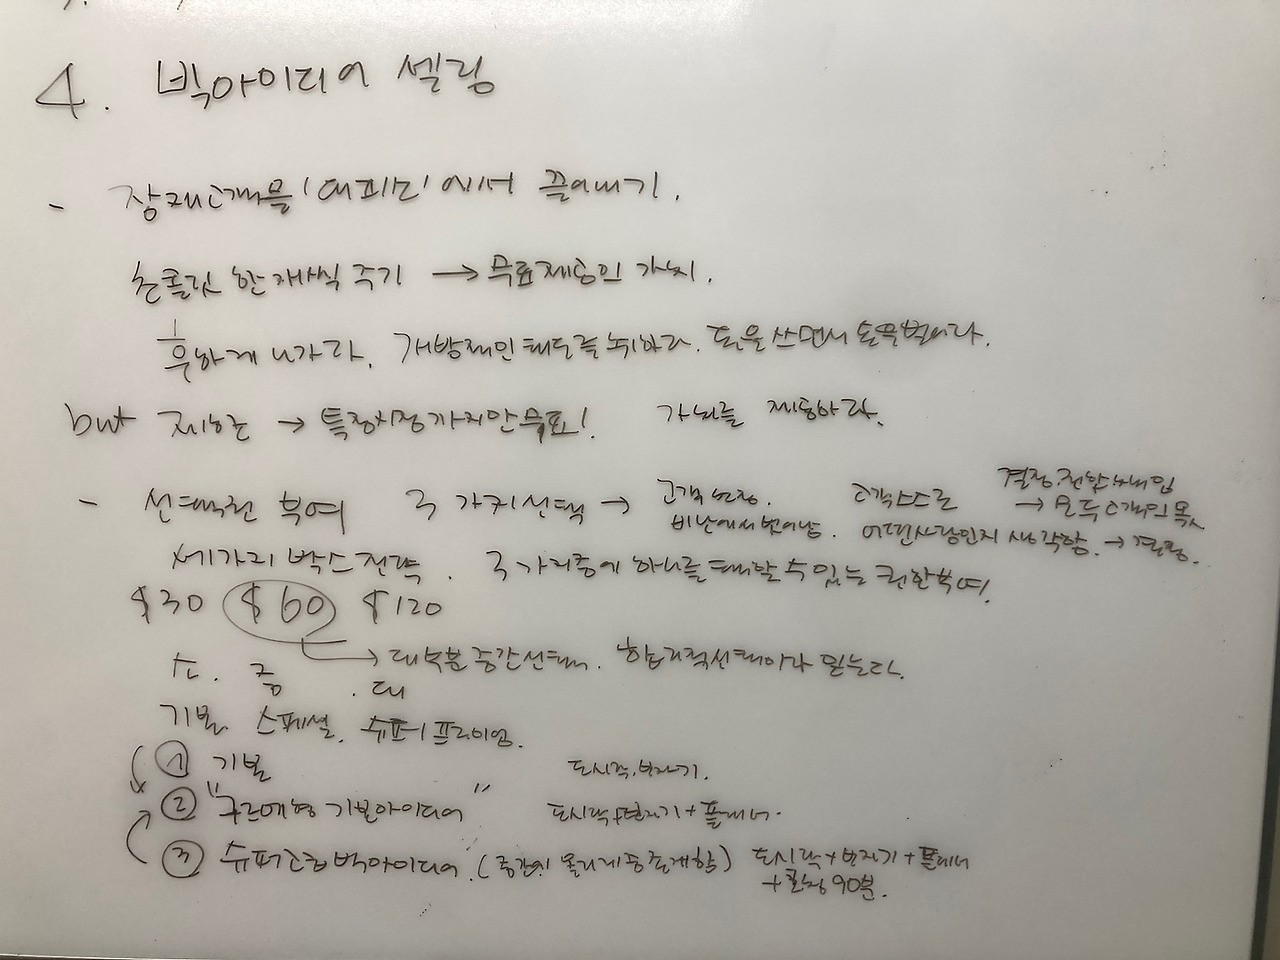 4. 빅아이디어 셀링
- 잠재고객을 '대피소'에서 끌어내기.
초콜릿 한 개씩 주기 → 무료제공의 가치.
후하게 나가라. 개방적인 태도를 취하라. 돈을 쓰면서 돈을 벌어라.
but 제한 → 특정시점까지만 무료! 가치를 제공하라.
- 선택권 부여 3가지선택 → 고객 존중. 비난에서 벗어남. 고객스스로 어떤사람인지 생각함. → 결정.
결정. 전환 →모두 고객의 몫
세가지 박스전략. 3가지중에 하나를 택할 수 있는 권한부여.
$30 $60 $120
→ 대부분 중간선택. 합리적선택이라 믿는다.
소. 중. 대
기본 스페셜. 슈퍼프리미엄.
① 기본 도시락, 보자기.
② "구르메형 기본아이디어" 도시락+보자기+플래너.
③ 슈퍼 빅아이디어. (중간이 올라게 함) 도시락+보자기+플래너
+코칭 90분.